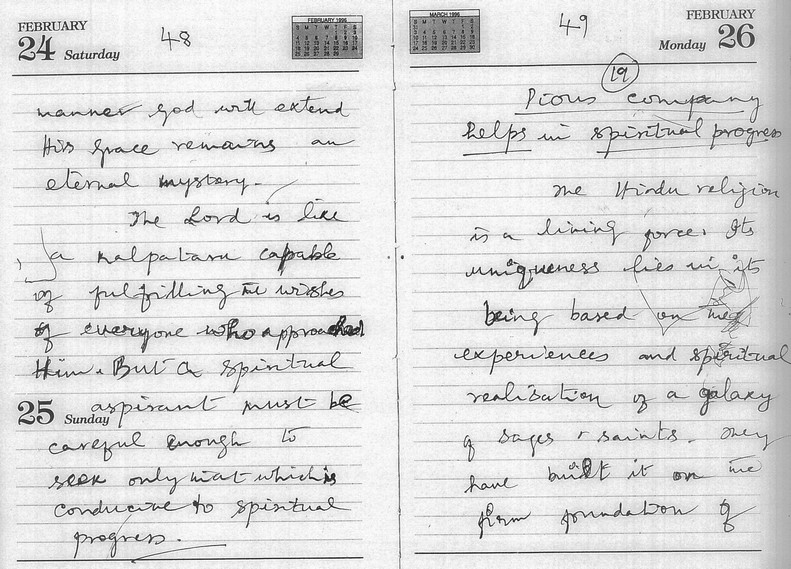 FEBRUARY
24 Saturday
48
FEBRUARY 1996
manner God will extend
His Grace remains an
eternal mystery.
The Lord is like
a Kalpataru capable
of fulfilling the wishes
of everyone who approached
Him. But a spiritual
25 Sunday
aspirant must be
careful enough to
seek only that which is
conducive to spiritual
progress.
MARCH 1996
49
FEBRUARY
Monday 26
19
Pious company
helps in spiritual progress
The Hindu religion
is a living force. Its
uniqueness lies in its
being based on the
experiences and spiritual
realisation of a galaxy
of sages & saints. They
have built it on the
firm foundation of